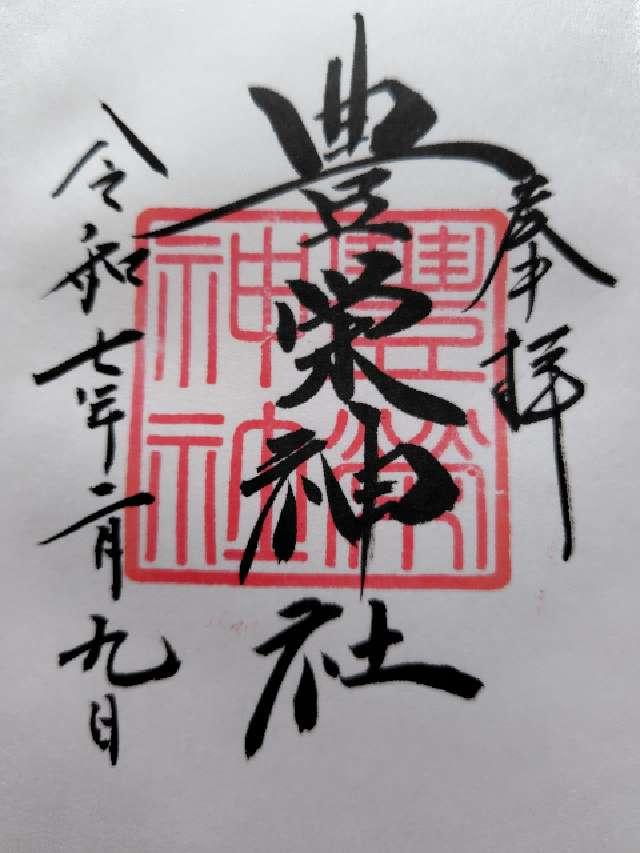 奉拝
豊栄神社
豊榮神社
令和七年二月九日